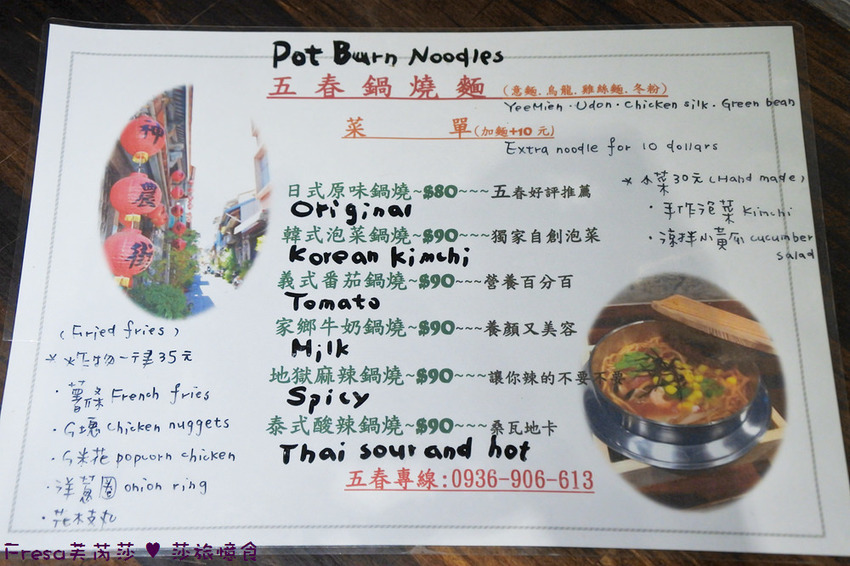 Pot Burn Noodles
五春鍋燒麵(意麵.烏龍.雞絲麵.冬粉)
YeeMien·Udon·Chicken silk·Green bean
菜單(加麵+10元)
Extra noodle for 10 dollars
神農街
日式原味鍋燒~$80~~~五春好評推薦
Original
韓式泡菜鍋燒~$90~~~獨家自創泡菜
Korean kimchi
義式番茄鍋燒~$90~~~營養百分百
Tomato
家鄉牛奶鍋燒~$90~~~養顏又美容
Milk
地獄麻辣鍋燒~$90~~~讓你辣的不要不要
Spicy
泰式酸辣鍋燒~$90~~~桑瓦地卡
Thai sour and hot
五春專線:0936-906-613
*小菜30元(Hand made)
·手作泡菜 Kimchi
·涼拌小黃瓜 cucumber
salad
(Fried fries)
*炸物一律35元
·薯條 French fries
·G塊 chicken nuggets
·G米花 popcorn chicken
·洋蔥圈 onion ring
·花枝丸
Fresa芙芮莎♥莎旅憶食